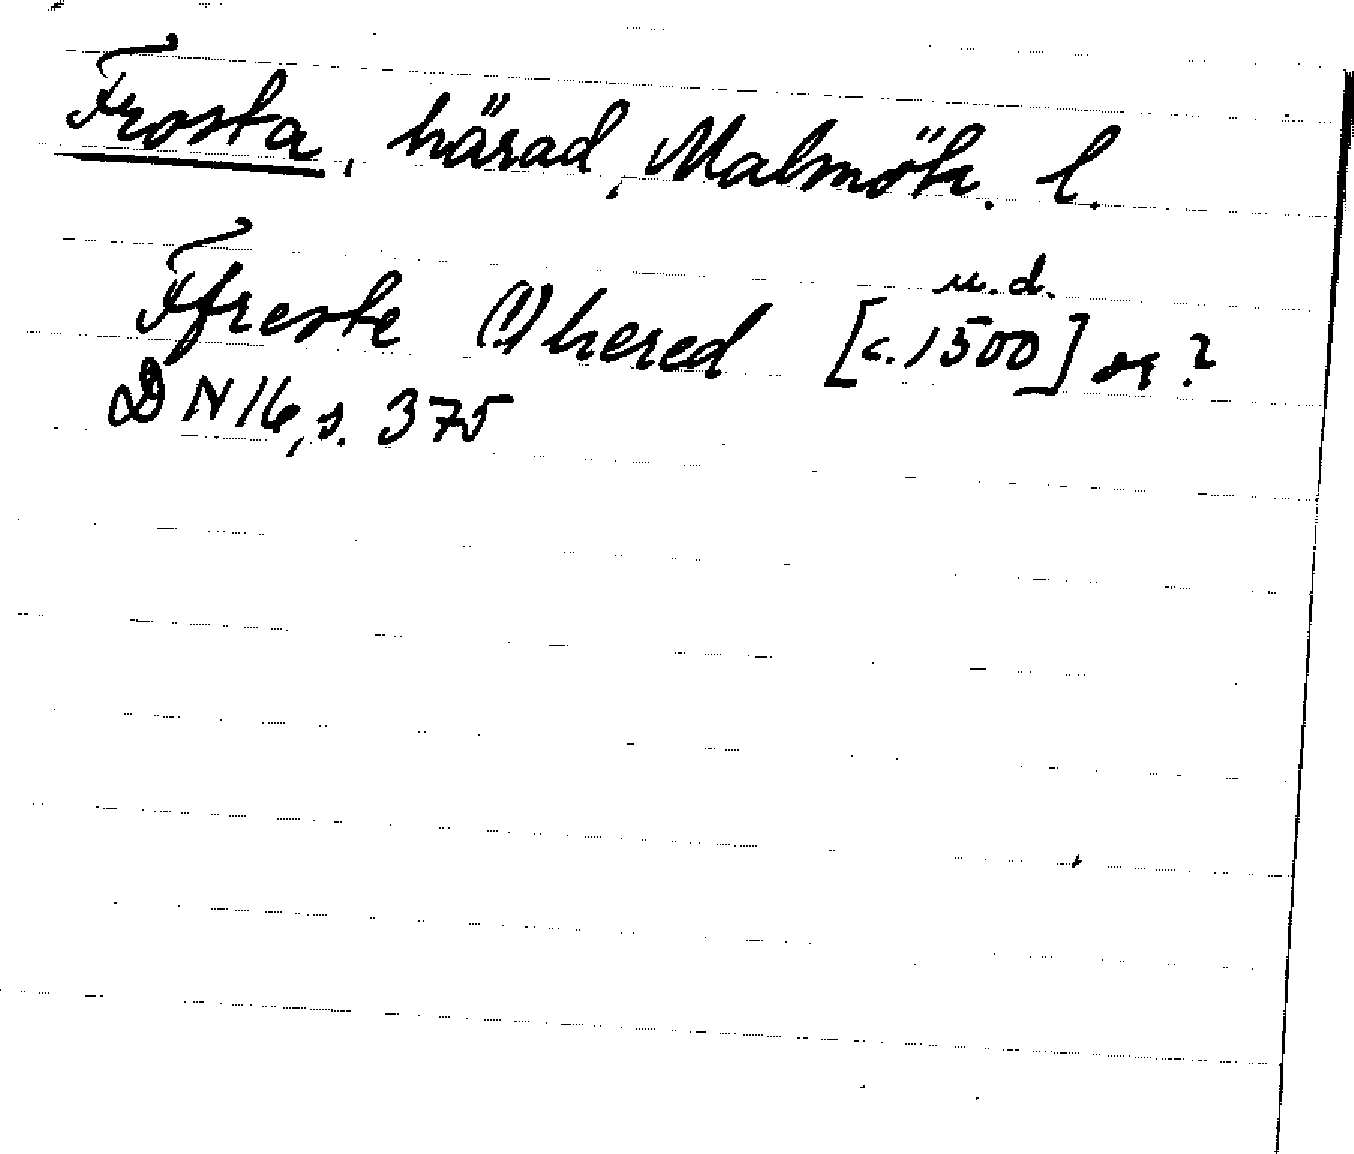 Frosta, härad, Malmöh. l.
Ffreste (!) hered [c. 1500] u.d. or ?
DN 16, s. 375